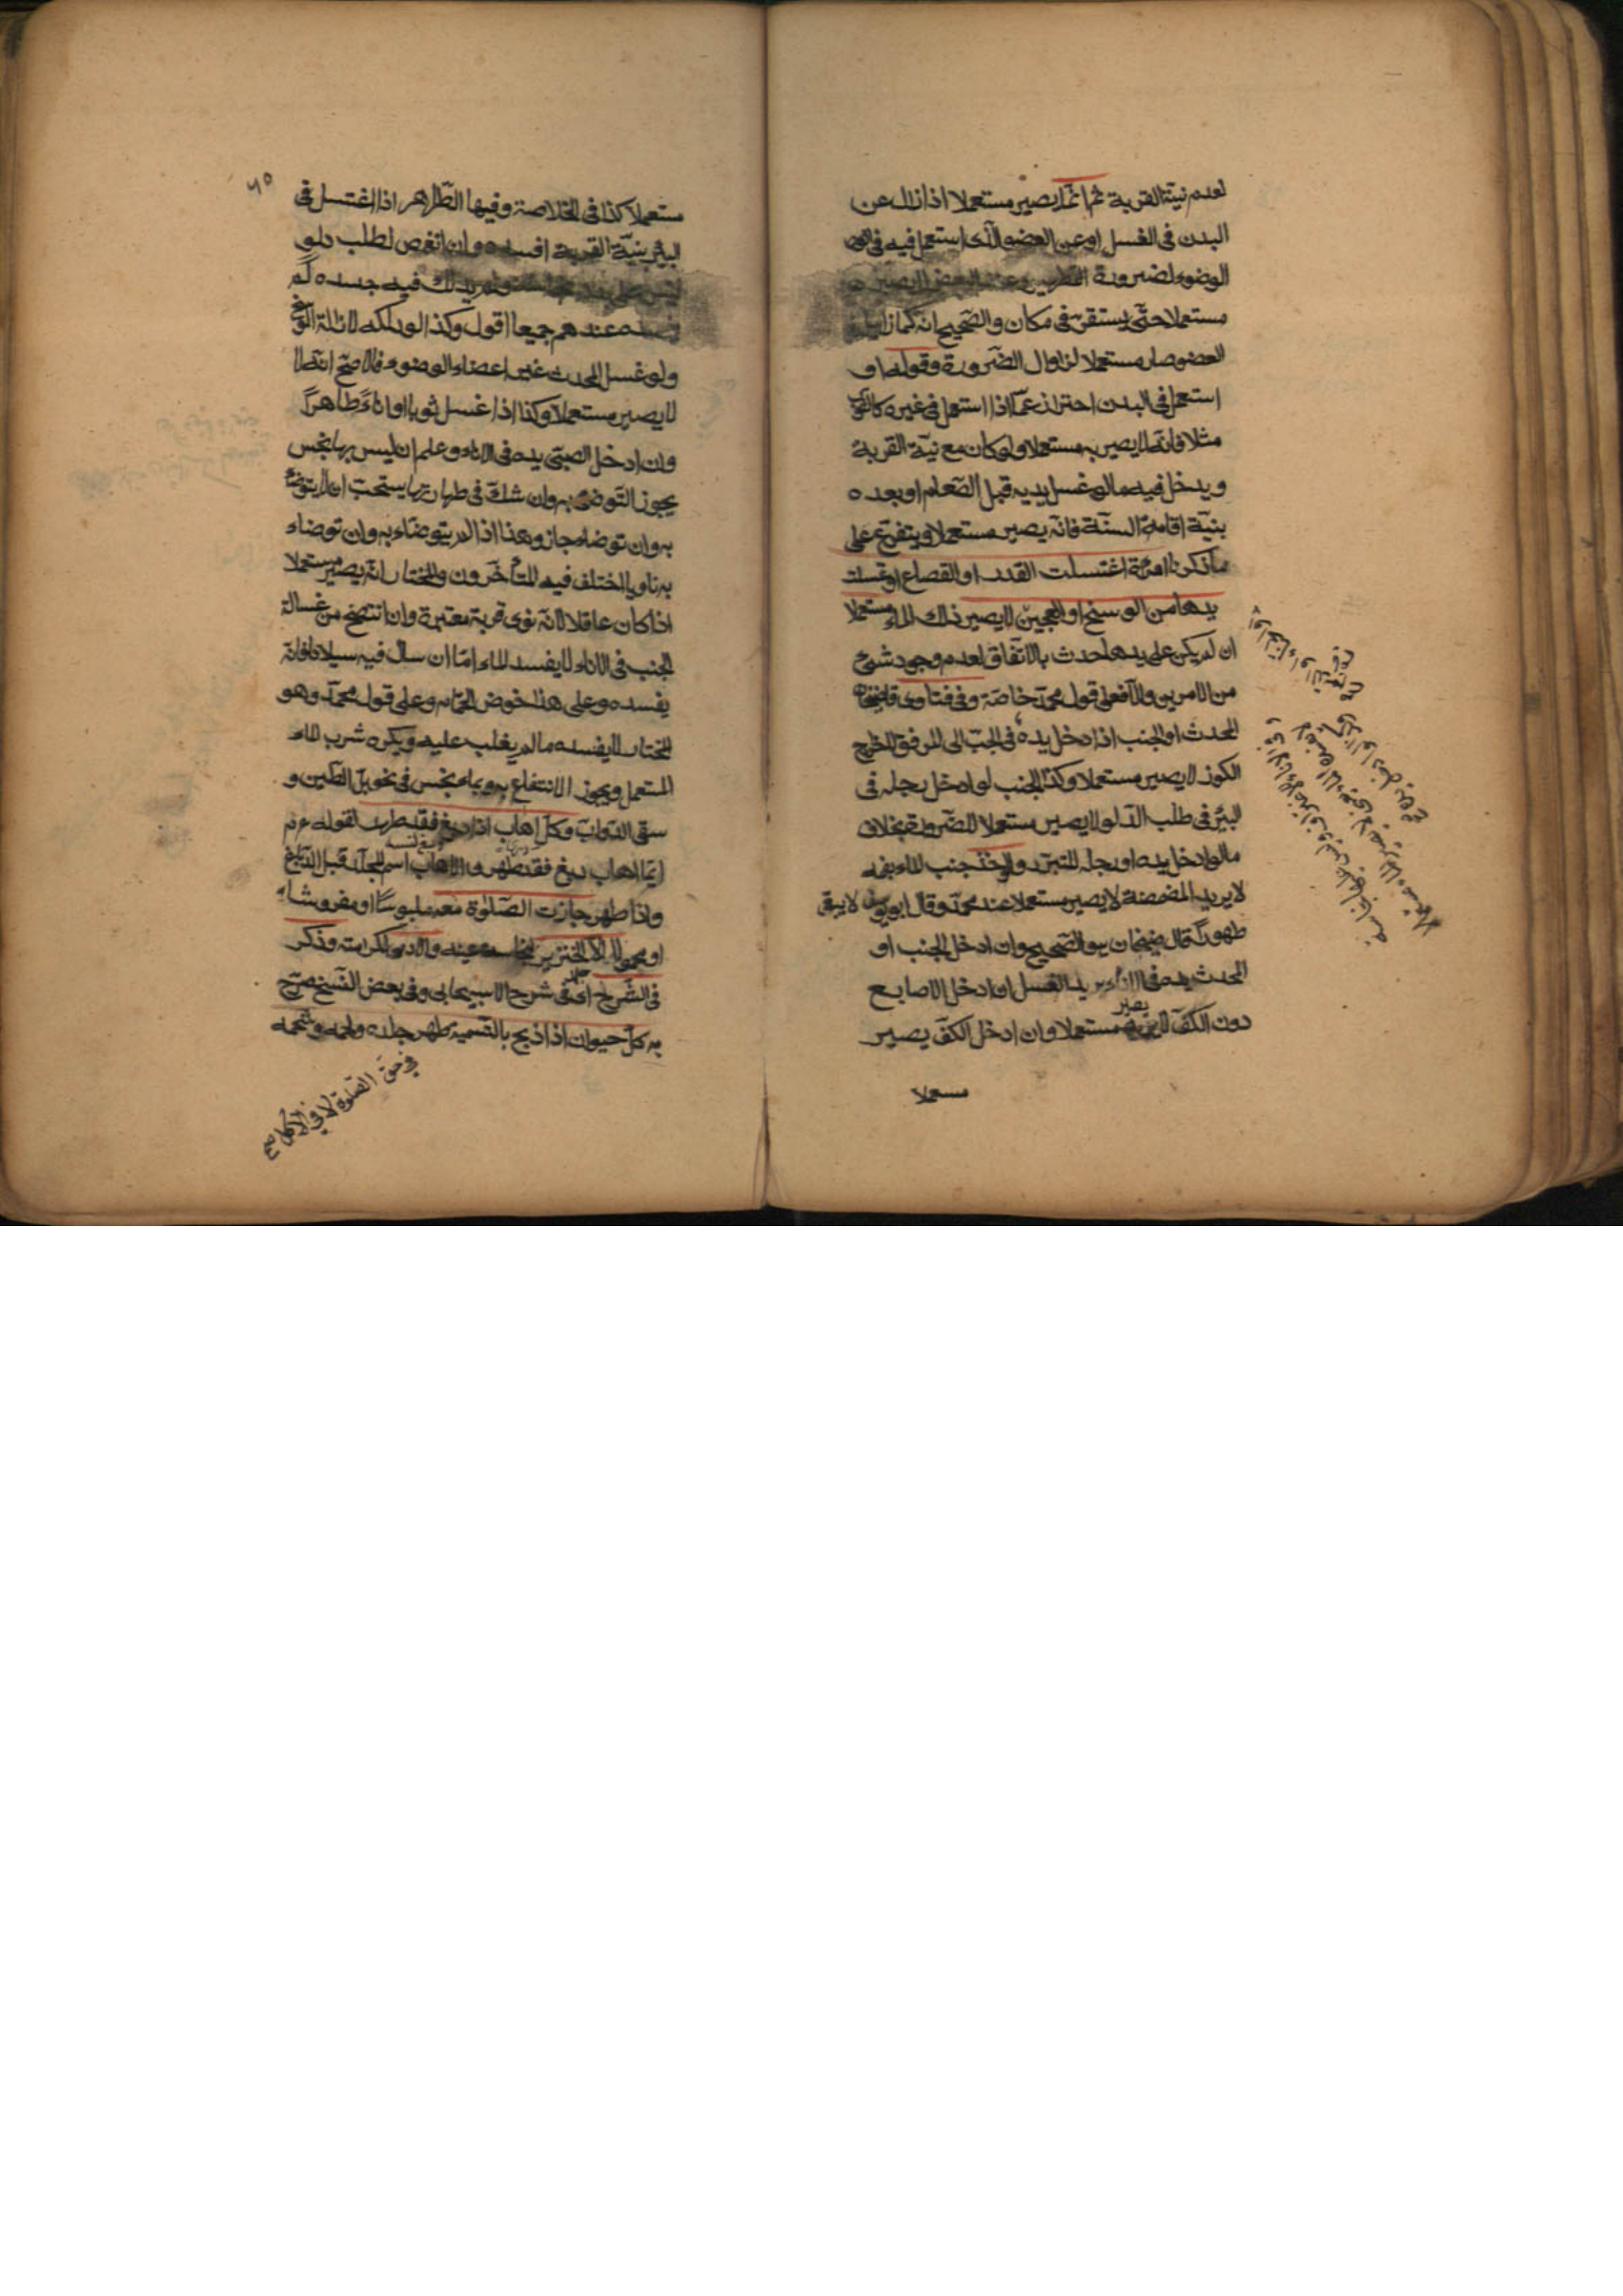 لعدم نية القربة ثم انما يصير مستعملا اذا زال عن
البدن في الغسل او عن العضو الذى استعمل فيه في
الوضوء لضرورة التطهير وعند البعض لا يصير
مستعملا حتى يستقر في مكان والصحيح انه كما زايل
العضو صار مستعملا لزوال الضرورة وقوله او
استعمل في البدن احتراز عما اذا استعمل في غيره كالثوب
مثلا فانه لا يصير به مستعملا ولو كان مع نية القربة
ويدخل فيه ما لو غسل يديه قبل الطعام او بعده
بنية اقامة السنة فانه يصير مستعملا ويتفرع على
ما ذكرنا امرءة اغتسلت القدر او القصاع او غسلت
يدها من الوسخ او العجين لا يصير ذلك الماء مستعملا
ان لم يكن على يدها حدث بالاتفاق لعدم وجود شئ
من الامرين والا فعلى قول محمد خاصة وفي فتاوى قاضيخان
المحدث او الجنب اذا دخل يده في الجب الى المرفق لاخراج
الكوز لا يصير مستعملا وكذا الجنب لو ادخل رجله في
البئر في طلب الدلو لا يصير مستعملا للضرورة بخلاف
ما لو ادخل يده او رجله للتبرد ولو اخذ جنب الماء بفمه
لا يريد المضمضة لا يصير مستعملا عند محمد وقال ابو يوسف لا يبقى
طهورا قال قاضيخان هو الصحيح وان ادخل الجنب او
المحدث يده في الاناء يريد الغسل ان ادخل الاصابع
دون الكف لا يصير مستعملا وان ادخل الكف يصير
مستعملا
٦٥
مستعملا كذا في الخلاصة وفيها الطاهر اذا اغتسل في
البئر بنية القربة افسده وان انغمس لطلب دلو
ليس على بدنه ولم يدلك فيه جسده لم
يفسده عندهم جميعا اقول وكذا لو دلكه لازالة الوسخ
ولو غسل المحدث غير اعضاء الوضوء فالاصح انه
لا يصير مستعملا وكذا اذا غسل ثوبا او اناء طاهرا
وان ادخل الصبى يده في الاناء وعلم ان ليس بها نجس
يجوز التوضئ به وان شك في طهارتها يستحب ان لا يتوضأ
به وان توضاء جاز وهذا اذا لم يتوضاء به وان توضاء
به ناويا اختلف فيه المتأخرون والمختار انه يصير مستعملا
اذا كان عاقلا لانه نوى قربة معتبرة وان انتضح من غسالة
الجنب في الاناء لا يفسد الماء اما ان سال فيه سيلانا فانه
يفسده وعلى هذا حوض الحمام وعلى قول محمد وهو
المختار لا يفسده ما لم يغلب عليه ويكره شرب الماء
المستعمل ويجوز الانتفاع به وبماء نجس في نحو بل الطين و
سقى الدواب وكل اهاب اذا دبغ فقد طهر لقوله ءم
ايما اهاب دبغ فقد طهر والاهاب اسم للجلد قبل الدباغ
واذا طهر جازت الصلوة معه ملبوسا او مفروشا
او محمولا الا الخنزير لنجاسة عينه والادمى لكرامته وذكر
في الشرح اى في شرح الاسبيجابى وفي بعض النسخ صرح
به كل حيوان اذا ذبح بالتسمية طهر جلده ولحمه وشحمه
في حق الصلوة لا في الاكل